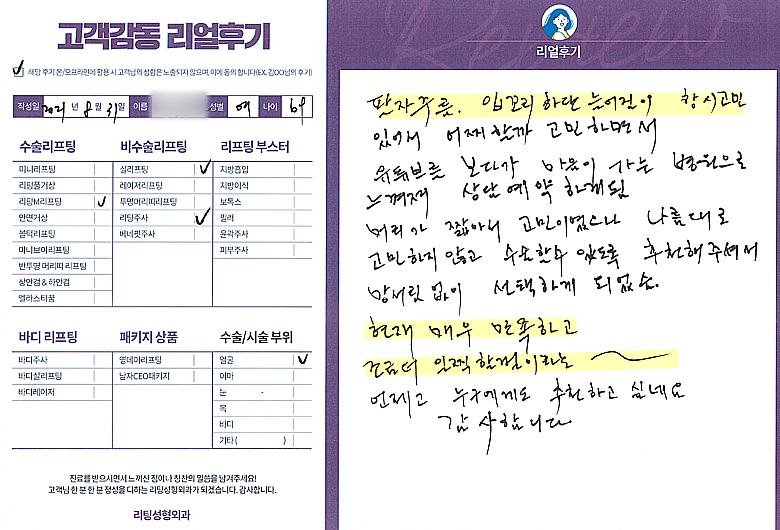 고객감동 리얼후기
해당 후기 온/오프라인에 활용 시 고객님의 성함은 노출되지 않으며, 이에 동의 합니다(EX. 김OO님의 후기)
작성일 2021 년 8 월 31 일 이름 성별 여 나이 69
수술리프팅
미니리프팅
리팅풀거상
리팅M리프팅 ✓
안면거상
붐턱리프팅
미니브이리프팅
반투명 머리띠 리프팅
상안검 & 하안검
엘라스티꿈
비수술리프팅
실리프팅 ✓
레이저리프팅
투명머리띠리프팅
리팅주사 ✓
베네핏주사
리프팅 부스터
지방흡입
지방이식
보톡스
필러
윤곽주사
피부주사
바디 리프팅
바디주사
바디실리프팅
바디레이저
패키지 상품
영데이리프팅
남자CEO패키지
수술/시술 부위
얼굴 ✓
이마
눈
목
바디
기타 ( )
진료를 받으시면서 느끼신 점이나 칭찬의 말씀을 남겨주세요!
고객님 한 분 한 분 정성을 다하는 리팅성형외과가 되겠습니다. 감사합니다.
리팅성형외과
Review
리얼후기
팔자주름. 입꼬리 하단 늘어짐이 항시고민
있어서 어찌할까 고민하면서
유튜브를 보다가 마음이 가는 병원으로
느껴져 상담예약 하게됨
머리가 짧아서 고민이였으나 나름대로
고민하지 않고 수술할수 있도록 추천해주셔서
망서림 없이 선택하게 되었슴.
현재 매우 만족하고
조금더 일찍 할껄이라는 ~
언제고 누구에게도 추천하고 싶네요
감사합니다